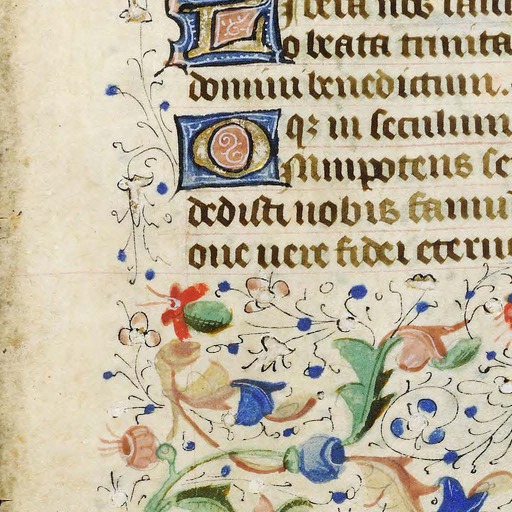 libera nos salu
o beata trinita
domini benedictum.
qꝫ in seculum
Omnipotens se
dedisti nobis famu
one uere fidei eterne